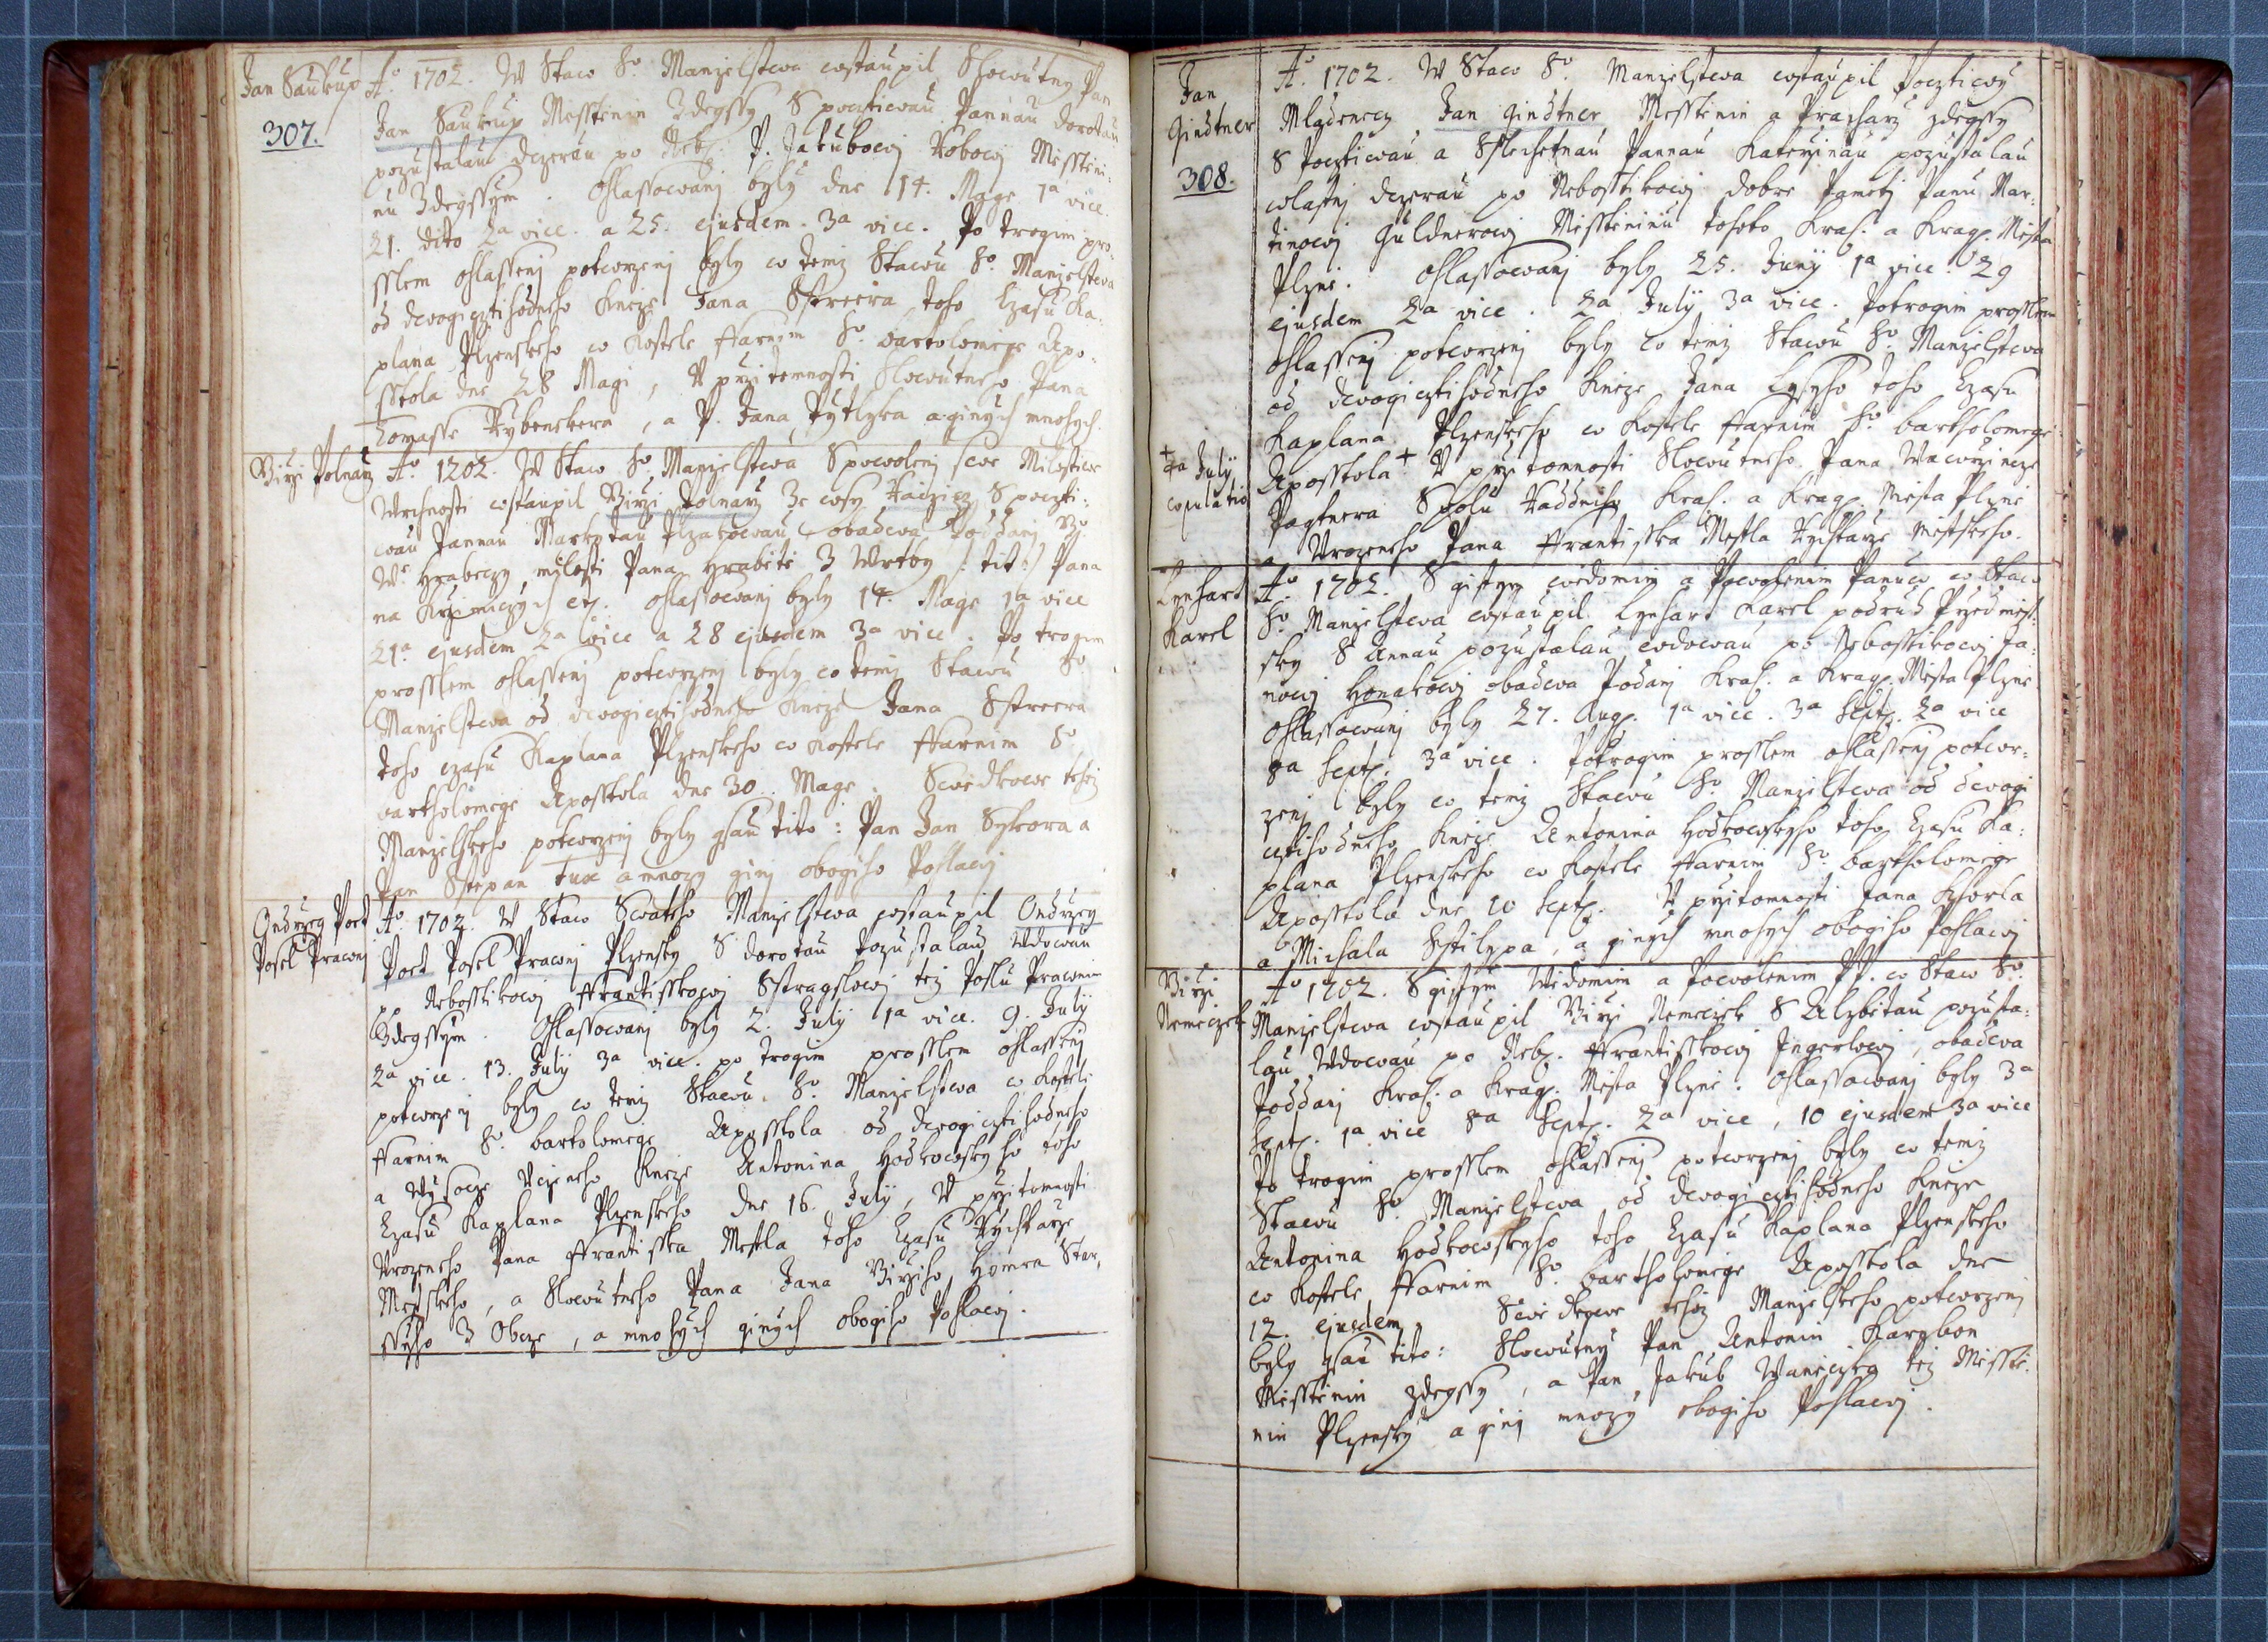 Jan Saukup
307.
Aº 1702. W Staw Sº Manzelstwa wstaupil Slowutny Pan
Jan Saukup Messtenin Zdegssy S pocztiwau Pannau Dorotau
pozustalau dczerau po Neb: P. Jakubowj Messteni:
nu Zdegssym. Ohlassowanj byly dne 14. Mage 1a vice.
21. dito 2a vice. a 25. ejusdem. 3a vice. Po trogim pro:
sslem ohlassenj potwrzenj byly w temz Stawu Sº Manzelstwa
od dwogicztihodneho Kneze Jana toho Czasu Ka:
plana Plzenskeho w Kostele Farnim Sº Bartolomege Apo:
sstola dne 28 Magi, W przitomnosti Slowutneho Pana
Tomasse, a P. Jana a ginych mnohych.
Girzi Polnarz
Aº 1702. W Staw Sº Manzelstwa S powolenj swe Milostiwe
Wrchnosti wstaupil Girzi Polnarz Ze wsy S poczti:
wau Pannau Marketau obadwa Poddanj
Hrabeczy milosti Pana Hrabete Z Wrtby /: tit :/ Pana
na Krzimiczych etc. Ohlassowanj byly 14. Mage 1a vice
21a ejusdem 2a vice a 28 ejusdem 3a vice. Po trogim
prosslem ohlassenj potwrzenj byly w temz Stawu Sº
Manzelstwa od dwogicztihodneho Kneze Jana
toho czasu Kaplana Plzenskeho w Kostele Farnim Sº
Bartholomege Aposstola dne 30. Mage. Swedkowe tehoz
Manzelskeho potwrzenj byly gsau tito: Pan Jan Sykora a
Pan Sstepan Tux a mnozy ginj obogiho Pohlawj
Ondrzeg Port
Posel Prawnj
Aº 1702. W Staw Swateho Manzelstwa wstaupil Ondrzeg
Port Posel Prawnj Plzensky S Dorotau Pozustalau Wdowau
po Nebosstikowj Frantisskowj tez Poslu Prawnim
Zdegssym. Ohlassowanj byly 2. July 1a vice. 9. July
2a vice. 13. July 3a vice. po trogim prosslem ohlassenj
potwrzenj byly w temz Stawu Sº Manzelstwa w Kostele
Farnim Sº Bartolomege Aposstola od dwogicztihodneho
a Wysoce Uczeneho Kneze Antonina Hodkowskyho toho
Czasu Kaplana Plzenskeho dne 16. July, W przitomnosti
Urozeneho Pana Frantisska Metla toho Czasu Rychtarze
Mestskeho, a Slowutneho Pana Jana Girziho Star:
ssyho Z Obcze, a mnohych ginych obogiho Pohlawj.
Jan
Gindtner
308.
Aº 1702. W Staw Sº Manzelstwa wstaupil Pocztiwy
Mladenecz Jan Gindtner Messtenin a zdegssy
S Pocztiwau a Sslechetnau Pannau Katerzinau pozustalau
wlastnj dczerau po Nebosstikowj dobre Pametj Panu Mar:
tinowj Guldnerowj Messteninu tohoto Kral. a Krag. Mesta
Plzne. Ohlassowanj byly 25. Juny 1a vice. 29
ejusdem 2a vice. 2a July 3a vice. Po trogim prosslem
ohlassenj potwrzenj byly w temz Stawu Sº Manzelstwa
od dwogicztihodneho Kneze Jana Lysyho toho Czasu
Kaplana Plzenskeho w Kostele Farnim Sº Bartholomege
Aposstola + W przitomnosti Slowutneho Pana Wawrzincze
Pagtnera Spolu Raddniho Kral. a Krag. Mesta Plzne
a Urozeneho Pana Frantisska Metla Rychtarze mestskeho.
+ July
copulatio
Lynhart
Karel
Aº 1702. S gistym wedomim a Powolenim Panuw w Staw
Sº Manzelstwa wstaupil Lynhart Karel podruh Przedmest:
sky S Annau pozustalau wdowau po Nebosstikowj Ja:
nowj obadwa Podanj Kral. a Krag. Mesta Plzne.
Ohlassowanj byly 27. Aug. 1a vice. 3a Sept. 2a vice
8a Sept. 3a vice. Po trogim prosslem ohlassenj potwr:
zenj byly w temz Stawu Sº Manzelstwa od dwogi
cztihodneho Kneze Antonina Hodkowskyho toho Czasu Ka:
plana Plzenskeho w Kostele Farnim Sº Bartholomege
Aposstola dne 10 Sept. W przitomnosti Jana
a Michala, a ginych mnohych obogiho Pohlawj
Girzi
Nemeczek
Aº 1702. S gistym Wedomim a Powolenim PP. w Staw Sº
Manzelstwa wstaupil Girzi Nemeczek S Alzbetau pozusta:
lau Wdowau po Neb. Frantisskowj, obadwa
Poddanj Kral. a Krag. Mesta Plzne. Ohlassowanj byly 3a
Sept. 1a vice 8a Sept. 2a vice, 10 ejusdem 3a vice
Po trogim prosslem ohlassenj potwrzenj byly w temz
Stawu Sº Manzelstwa od dwogicztihodneho Kneze
Antonina Hodkowskyho toho Czasu Kaplana Plzenskeho
w Kostele Farnim Sº Bartholomege Aposstola dne
12. ejusdem. Swedkowe tehoz Manzelskeho potwrzenj
byly gsau tito: Slowutny Pan Antonin Karybon
Messtenin zdegssy, a Pan Jakub tez Messte:
nin Plzensky a ginj mnozy obogiho Pohlawj.